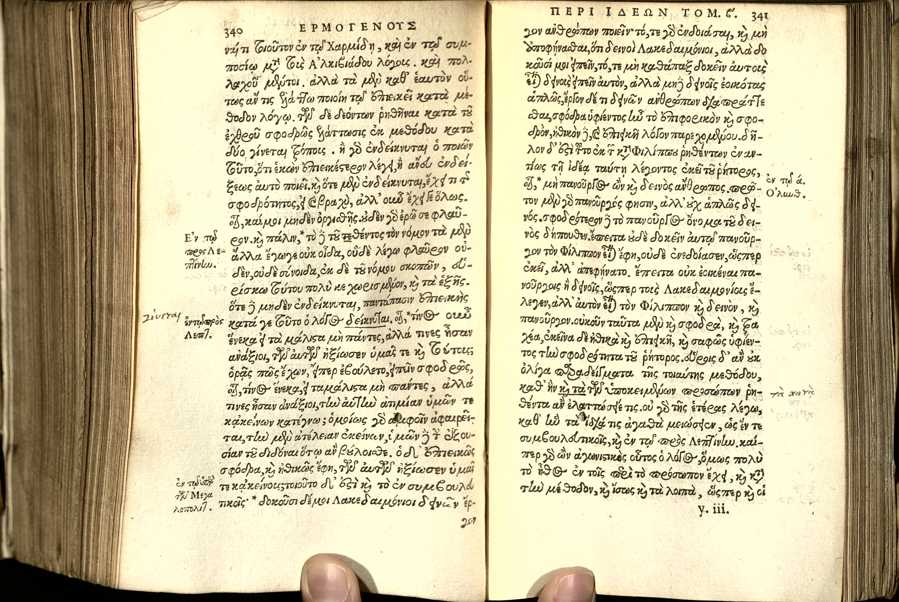 340 ΕΡΜΟΓΕΝΟΥΣ
ναί τι τοιοῦτον ἐν τῷ Χαρμίδῃ, καὶ ἐν τῷ συμ-
ποσίῳ μετὰ τοὺς Ἀλκιβιάδου λόγοις. καὶ πολ-
λαχοῦ μέντοι. ἀλλὰ τὰ μὲν καθ' ἑαυτὸν οὕ-
τως ἄν τις ἐλάττω ποιοίη τῷ ἐπιεικεῖ κατὰ μέ-
θοδον λόγῳ. τῶν δὲ δεόντων ῥηθῆναι κατὰ τοῦ
ἐχθροῦ σφοδρῶς ἐλάττωσις ἐκ μεθόδου κατὰ
δύο γίνεται τρόπους. ἢ γὰρ ἐνδείκνυται ὁ ποιῶν
τοῦτο, ὅτι ἑκὼν ἐπιεικέστερον λέγει, ἢ ἄνευ ἐνδεί-
ξεως αὐτὸ ποιεῖ. καὶ ὅτε μὲν ἐνδείκνυται, ἔχει τι
σφοδρότητος, εἰ καὶ βραχὺ, ἀλλ' οὖν ἔχει γε ὅλως.
οἷον, καί μοι μηδὲν ὀργισθῇς. οὐδὲν γὰρ ἐρῶ σε φλαῦ-
ρον. καὶ πάλιν, * τὸ δὲ τεθέντος τὸν νόμον τὰ μὲν
ἄλλα ἔγωγε οὐκ οἶδα, οὐδὲ λέγω φλαῦρον οὐ-
δὲν, οὐδὲ σύνοιδα, ἐκ δὲ τοῦ νόμου σκοπῶν, εὑ-
ρίσκω τούτου πολύ κεχωρισμένον, καὶ τὰ ἑξῆς.
ὅτε δὲ μηδὲν ἐνδείκνυται, παντάπασιν ἐπιεικὴς
κατά γε τοῦτο ὁ λόγος δείκνυται, οἷον, * τίνος οὖν
ἕνεκα; εἰ τὰ μάλιστα μὴ πάντες, ἀλλά τινες ἦσαν
ἀνάξιοι, τῶν αὐτῶν ἠξίωσεν ὑμᾶς τε καὶ τούτους;
ὁρᾷς πῶς ἔχων, εἴπερ ἐβούλετο, εἰπεῖν σφοδρῶς,
οἷον, τίνος ἕνεκα, εἰ τὰ μάλιστα μὴ πάντες, ἀλλά
τινες ἦσαν ἀνάξιοι, τὴν αὐτὴν ἀτιμίαν ὑμῶν τε
κἀκείνων κατέγνω; ὁμοίως γὰρ ἀμφοῖν ἀφαιρεῖ-
ται, τὴν μὲν ἀτέλειαν ἐκείνων, ὑμῶν δὲ τὴν ἐξου-
σίαν τοῦ διδόναι ὅτῳ ἂν βούλοισθε. ὁ δ' ἐπιεικῶς
σφόδρα, καὶ ἠθικῶς ἔφη, τῶν αὐτῶν ἠξίωσεν ὑμᾶς
τε κἀκείνους; τοιοῦτο δ' ἐστὶ καὶ τὸ ἐν συμβουλευ-
τικοῖς· * δοκοῦσι δέ μοι Λακεδαιμόνιοι δεινῶν ἔρ-
γον
Ἐν τῷ
πρὸς Λε-
πτίνην.
ἐν τῷ πρὸς
Λεπτ.
ἐν τῷ ὑπὲρ
τῶν Μεγα
λοπολιτ.
ΠΕΡΙ ΙΔΕΩΝ ΤΟΜ. β. 341
γον ἀνθρώπων ποιεῖν· τό, τε γὰρ ἐνδοιάσαι, καὶ μὴ
ἀποφήνασθαι, ὅτι δεινοὶ Λακεδαιμόνιοι, ἀλλὰ δο
κοῦσί μοι εἰπεῖν, τό, τε μὴ καθάπαξ δοκεῖν αὐτοὺς
εἶναι δεινοὺς εἰπεῖν αὐτὸν, ἀλλὰ μὴ δεινοῖς ἐοικότας
ἁπλῶς, ἔργον δέ τι δεινῶν ἀνθρώπων διαπράττε
σθαι, σφόδρα ὑφιέντος ἦν τὸ ἐπιφορικὸν καὶ σφο-
δρὸν, ἠθικὸν δὲ, καὶ ἐπιεικῆ λόγον παρεχομένου. δῆ-
λον δ' ἐστὶ τοῦτο ἐκ τῶν κατὰ Φιλίππου ῥηθέντων ἐναν-
τίως τῇ ἰδέᾳ ταύτῃ λέγοντος ἐκεῖ τοῦ ῥήτορος,
οἷον, * μὴ πανοῦργος ὢν καὶ δεινὸς ἄνθρωπος. πρῶ-
τον μὲν γὰρ πανοῦργός φησιν, ἀλλ' οὐχ ἁπλῶς δει-
νός. σφοδρότερον δὲ τὸ πανοῦργος ὄνομα τοῦ δει-
νὸς δήπουθεν. ἔπειτα οὐδὲ δοκεῖν αὐτῷ πανοῦρ-
γον τὸν Φίλιππον εἶναι ἔφη, οὐδὲ ἐνεδοίασεν, ὥσπερ
ἐκεῖ, ἀλλ' ἀπεφήνατο. ἔπειτα οὐκ ἐοικέναι πα-
νούργοις ἢ δεινοῖς, ὥσπερ τοὺς Λακεδαιμονίους ἔ-
λεγεν, ἀλλ' αὐτὸν εἶναι τὸν Φίλιππον καὶ δεινὸν, καὶ
πανοῦργον. οὐκοῦν ταῦτα μὲν καὶ σφοδρὰ, καὶ τρα
χέα, ἐκεῖνα δὲ ἠθικὰ καὶ ἐπιεικῆ, καὶ σαφῶς ὑφιέν-
τος τὴν σφοδρότητα τοῦ ῥήτορος. εὕροις δ' ἂν οὐκ
ὀλίγα παραδείγματα τῆς τοιαύτης μεθόδου,
καθ' ἣν καὶ τὰ τῶν ὑποκειμένων προσώπων ῥη-
θέντα ἂν ἐλαττώσειέ τις. οὐ γὰρ τῆς ἑτέρας λέγω,
καθ' ἣν τὰ ἴδιά τις ἀγαθὰ μειώσειεν, ὡς ἔν τε
συμβουλευτικοῖς, καὶ ἐν τῷ πρὸς Λεπτίνην. καί-
περ γὰρ ὢν ἀγωνιστικὸς οὗτος ὁ λόγος, ὅμως πολὺ
τὸ ἦθος ἐν τοῖς περὶ τὸ πρόσωπον ἔχει, καὶ κατὰ
τὴν μέθοδον, καὶ ἴσως καὶ τὰ λοιπά, ὥσπερ καὶ οἱ
y. iii.
ἐν τῷ ά.
Ὀλυνθ.